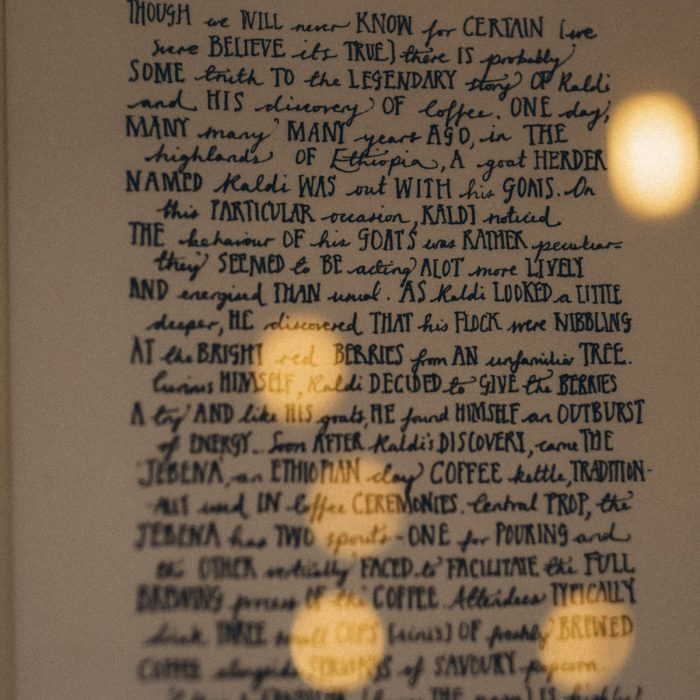 THOUGH we WILL never KNOW for CERTAIN (we
sure BELIEVE its TRUE) there IS probably
SOME truth TO the LEGENDARY story OF Kaldi
and HIS discovery OF Coffee. ONE day,
MANY many MANY years AGO, in THE
highlands OF Ethiopia, A goat HERDER
NAMED Kaldi WAS out WITH his GOATS. On
this PARTICULAR occasion, KALDI noticed
THE behaviour OF his GOATS was RATHER peculiar=
they SEEMED to BE acting ALOT more LIVELY
AND energised THAN usual. AS Kaldi LOOKED a LITTLE
deeper, HE discovered THAT his FLOCK were NIBBLING
AT the BRIGHT red BERRIES from AN unfamiliar TREE.
Curious HIMSELF, Kaldi DECIDED to GIVE the BERRIES
A try AND like HIS goats, HE found HIMSELF an OUTBURST
of ENERGY... Soon AFTER Kaldi's DISCOVERY, came THE
JEBENA, an ETHIOPIAN clay COFFEE kettle, TRADITION-
ALLY used IN Coffee CEREMONIES. Central PROP, the
JEBENA has TWO spouts - ONE for POURING and
the OTHER vertically FACED to FACILITATE the FULL
BREWING process OF the COFFEE. Attendees TYPICALLY
drink THREE small CUPS (sinis) OF freshly BREWED
COFFEE alongside SERVINGS of SAVOURY popcorn.
THE name) IS highly